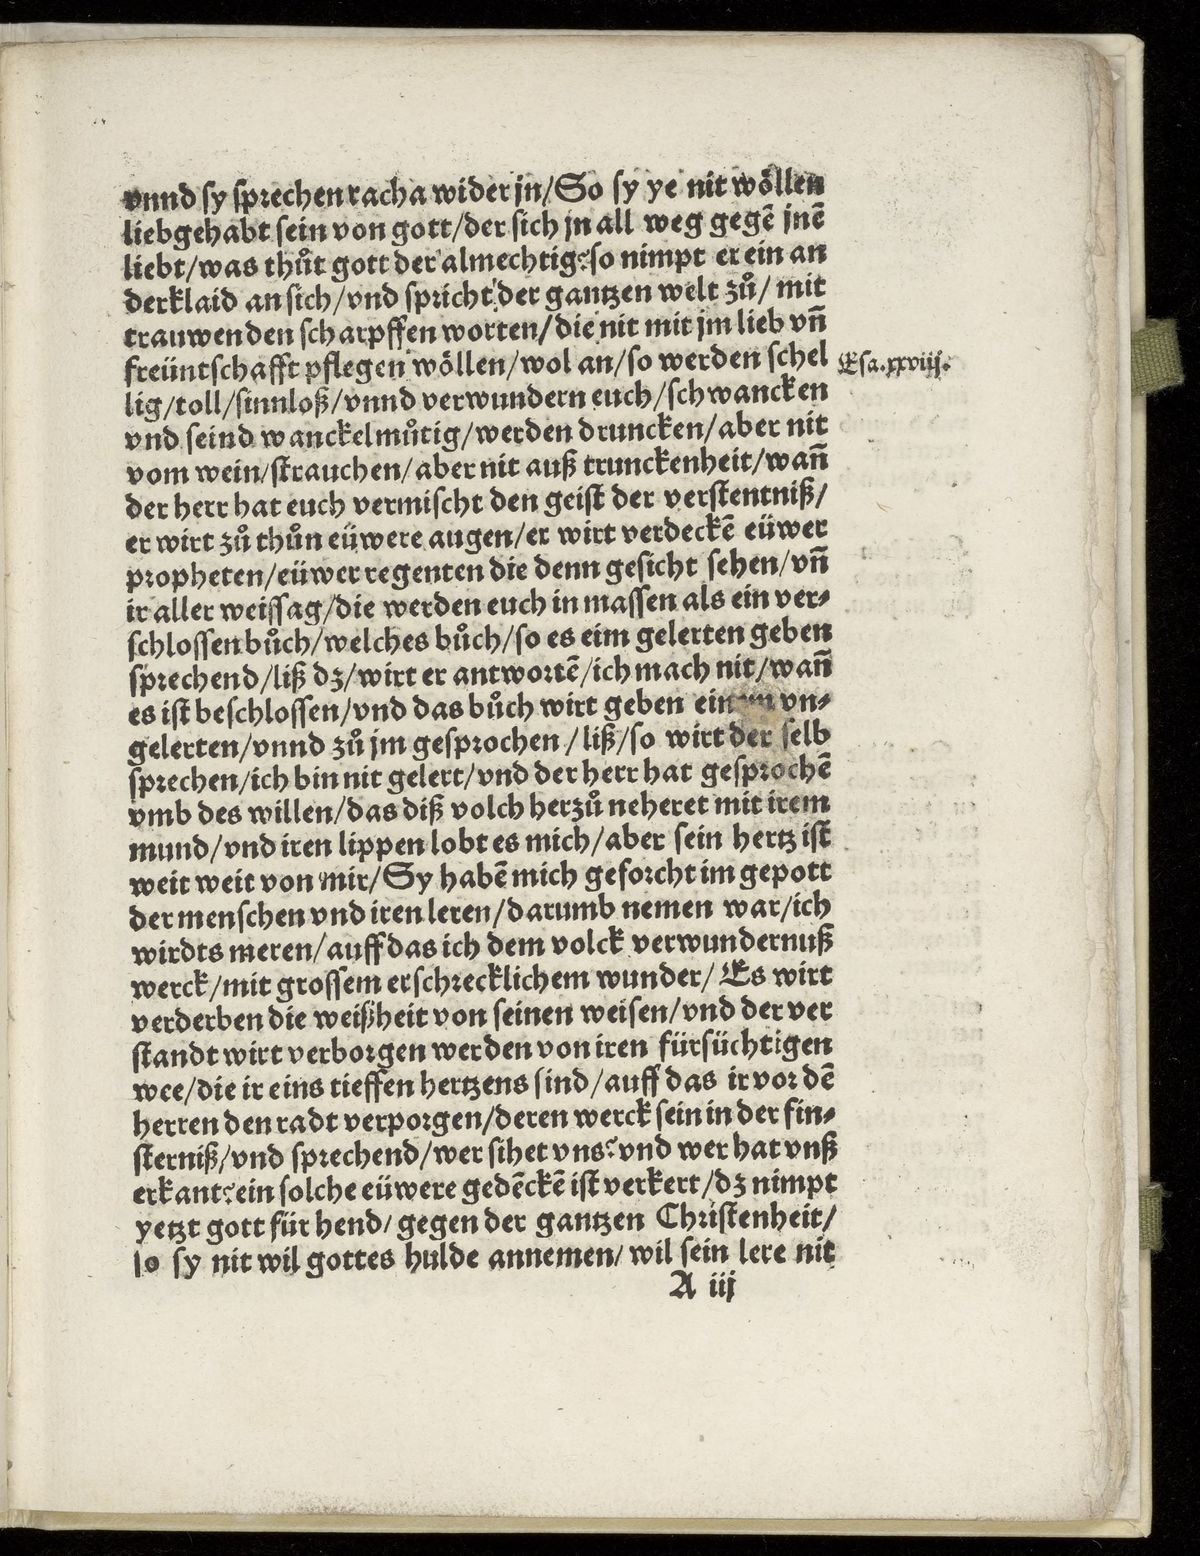 vnnd sy sprechen racha wider jn/So sy ye nit wöllen
liebgehabt sein von gott/der sich jn all weg gegē jnē
liebt/was thůt gott der almechtig?so nimpt er ein an
derklaid an sich/vnd spricht der gantzen welt zů/mit
trauwenden scharpffen worten/die nit mit jm lieb vñ
freüntschafft pflegen wöllen/wol an/so werden schel
Esa.xxviij.
lig/toll/sinnloß/vnnd verwundern euch/schwancken
vnd seind wanckelmůtig/werden druncken/aber nit
vom wein/strauchen/aber nit auß trunckenheit/wañ
der herr hat euch vermischt den geist der verstentniß/
er wirt zů thůn eüwere augen/er wirt verdeckē eüwer
propheten/eüwer regenten die denn gesicht sehen/vñ
ir aller weissag/die werden euch in massen als ein ver⸗
schlossen bůch/welches bůch/so es eim gelerten geben
sprechend/liß dz/wirt er antwortē/ich mach nit/wañ
es ist beschlossen/vnd das bůch wirt geben einem vn⸗
gelerten/vnnd zů jm gesprochen/liß/so wirt der selb
sprechen/ich bin nit gelert/vnd der herr hat gesprochē
vmb des willen/das diß volch herzů neheret mit irem
mund/vnd iren lippen lobt es mich/aber sein hertz ist
weit weit von mir/Sy habē mich geforcht im gepott
der menschen vnd iren leren/darumb nemen war/ich
wirdts meren/auff das ich dem volck verwundernuß
werck/mit grossem erschrecklichem wunder/Es wirt
verderben die weißheit von seinen weisen/vnd der ver
standt wirt verborgen werden von iren fürsüchtigen
wee/die ir eins tieffen hertzens sind/auff das ir vor dē
herren den radt verporgen/deren werck sein in der fin⸗
sterniß/vnd sprechend/wer sihet vns?vnd wer hat vnß
erkant?ein solche eüwere gedēckē ist verkert/dz nimpt
yetzt gott für hend/gegen der gantzen Christenheit/
so sy nit wil gottes hulde annemen/wil sein lere nit
A iij